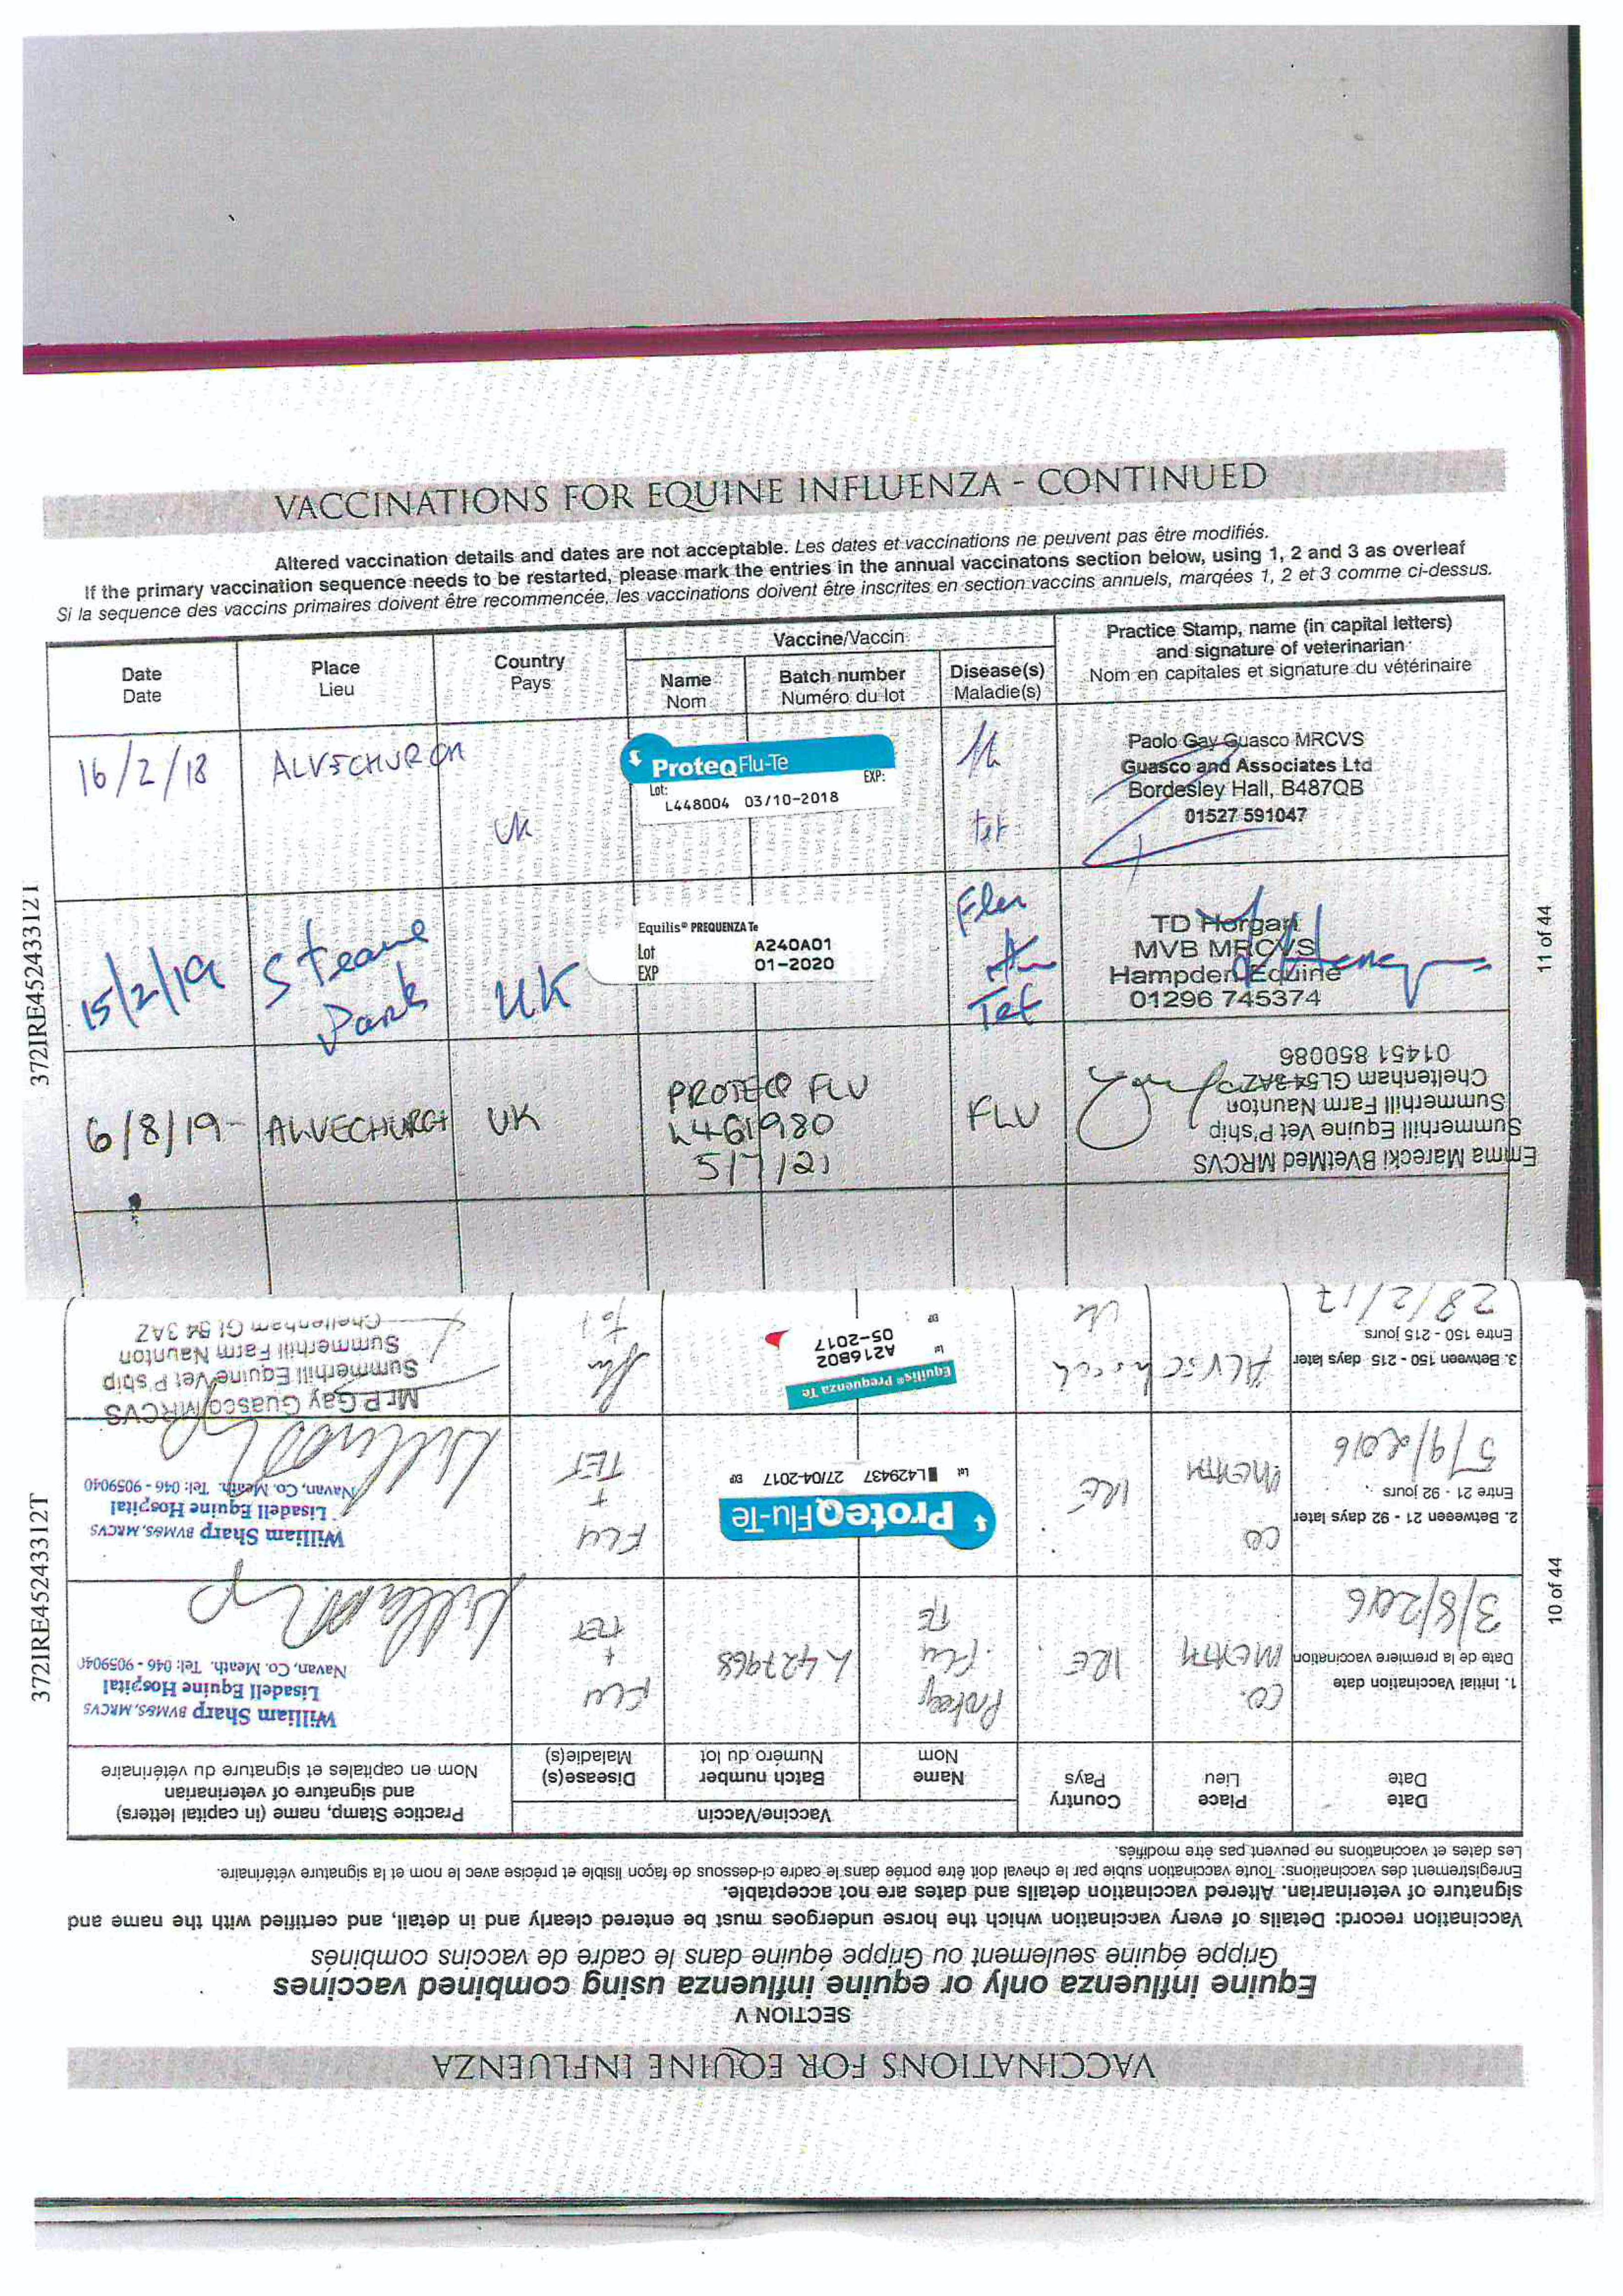 VACCINATIONS FOR EQUINE INFLUENZA - CONTINUED
Altered vaccination details and dates are not acceptable. Les dates et vaccinations ne peuvent pas être modifiés.
If the primary vaccination sequence needs to be restarted, please mark the entries in the annual vaccinatons section below, using 1, 2 and 3 as overleaf
Si la sequence des vaccins primaires doivent être recommencée, les vaccinations doivent être inscrites en section vaccins annuels, marqées 1, 2 et 3 comme ci-dessus.
Date
Date
Place
Lieu
Country
Pays
Vaccine/Vaccin
Name
Nom
Batch number
Numéro du lot
Disease(s)
Maladie(s)
Practice Stamp, name (in capital letters)
and signature of veterinarian
Nom en capitales et signature du vétérinaire
16/2/18
ALVECHURCH
UK
ProteqFlu-Te
Lot: EXP:
L448004 03/10-2018
Tet
Paolo Gay Guasco MRCVS
Guasco and Associates Ltd
Bordesley Hall, B487QB
01527 591047
15/2/19
Steane
Park
UK
Equilis® PREQUENZA Te
Lot A240A01
EXP 01-2020
Flu
Tet
TD Horgan
MVB MRCVS
Hampden Equine
01296 745374
6/8/19
ALVECHURCH
UK
PROTEQ FLU
L461980
5/7/21
FLU
Emma Marecki BVetMed MRCVS
Summerhill Equine Vet P'ship
Summerhill Farm Naunton
Cheltenham GL54 3AZ
01451 850086
372IRE452433312T
11 of 44
VACCINATIONS FOR EQUINE INFLUENZA
SECTION V
Equine influenza only or equine influenza using combined vaccines
Grippe équine seulement ou Grippe équine dans le cadre de vaccins combinés
Vaccination record: Details of every vaccination which the horse undergoes must be entered clearly and in detail, and certified with the name and
signature of veterinarian. Altered vaccination details and dates are not acceptable.
Enregistrement des vaccinations: Toute vaccination subie par le cheval doit être portée dans le cadre ci-dessous de façon lisible et précise avec le nom et la signature vétérinaire.
Les dates et vaccinations ne peuvent pas être modifiés.
Date
Date
Place
Lieu
Country
Pays
Vaccine/Vaccin
Name
Nom
Batch number
Numéro du lot
Disease(s)
Maladie(s)
Practice Stamp, name (in capital letters)
and signature of veterinarian
Nom en capitales et signature du vétérinaire
1. Initial Vaccination date
Date de la première vaccination
3/8/2016
CO.
MEATH
IRE
Proteq
Flu
TE
L427968
FLU
+
TET
William Sharp BVMBS, MRCVS
Lisadell Equine Hospital
Navan, Co. Meath. Tel: 046 - 9059040
2. Between 21 - 92 days later
Entre 21 - 92 jours
5/9/2016
CO
MEATH
IRE
ProteqFlu-Te
Lot L429437 27/04-2017 EXP
FLU
+
TET
William Sharp BVMBS, MRCVS
Lisadell Equine Hospital
Navan, Co. Meath. Tel: 046 - 9059040
3. Between 150 - 215 days later
Entre 150 - 215 jours
28/2/17
ALVECHURCH
UK
Equilis® Prequenza Te
Lot A216B02
05-2017
EXP
Mr P Gay Guasco MRCVS
Summerhill Equine Vet P'ship
Summerhill Farm Naunton
Cheltenham Gl 54 3AZ
372IRE452433312T
10 of 44